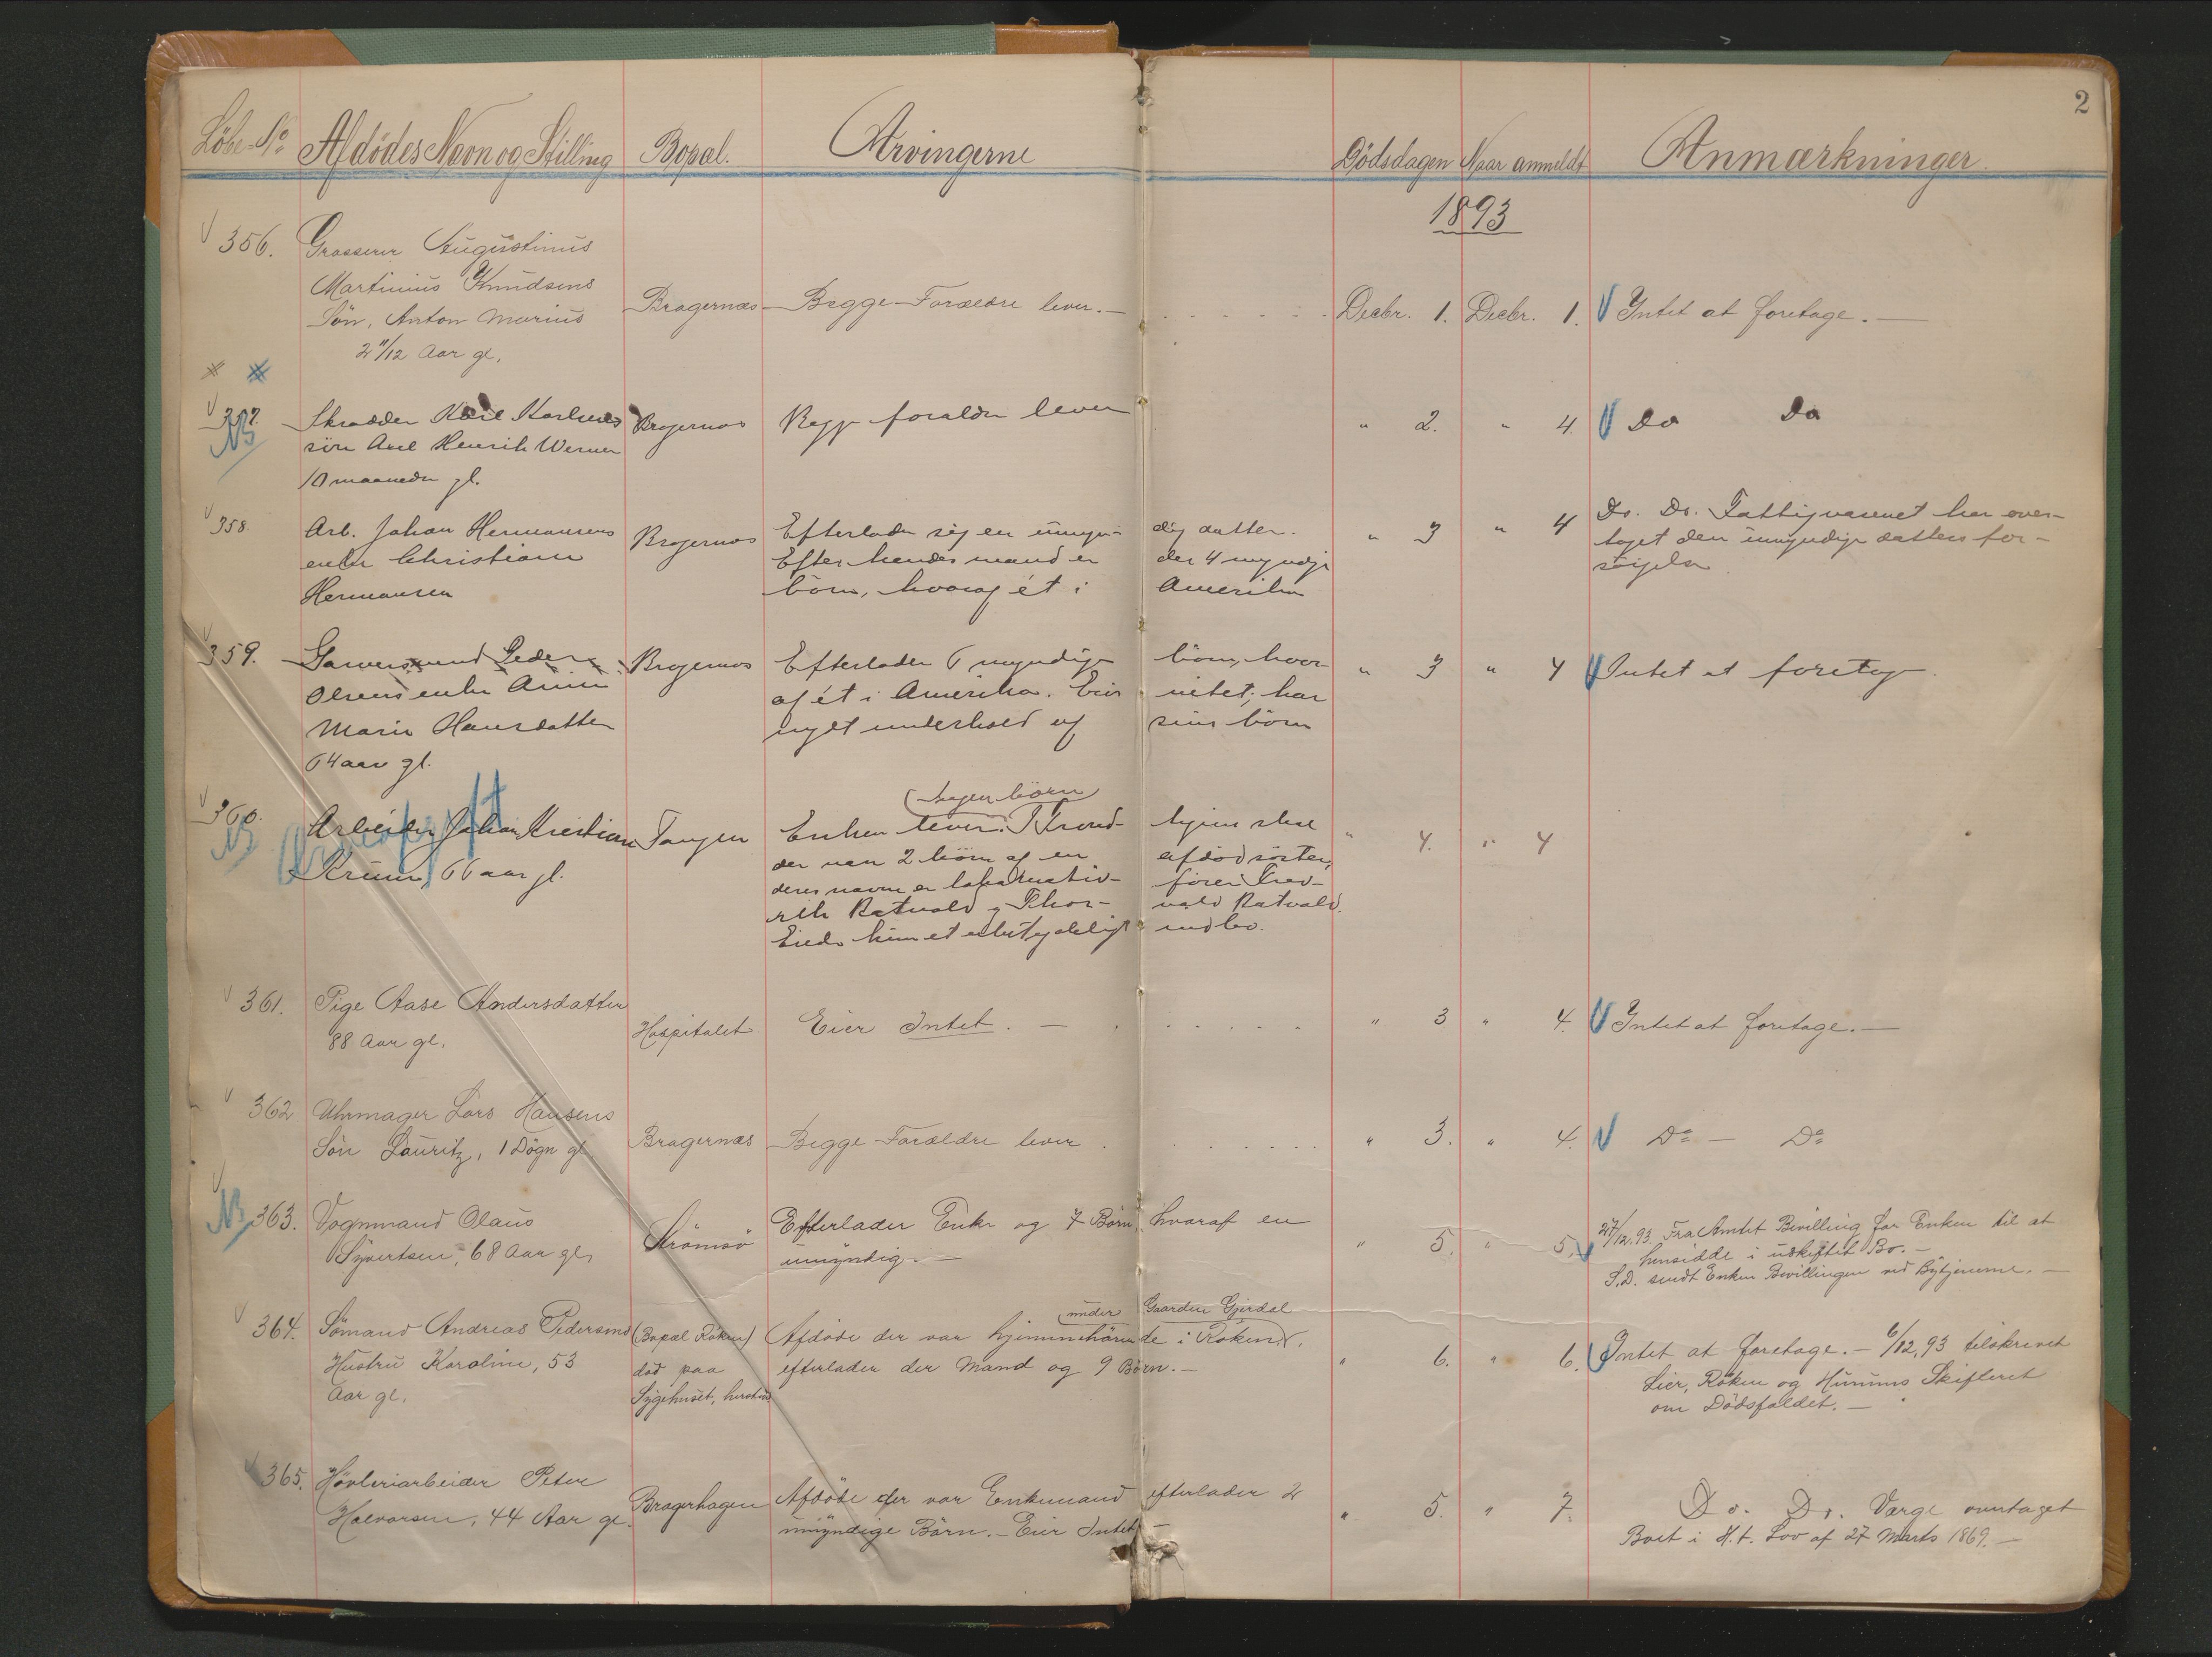 2
Löbe-No Afdödes Navn og Stilling Bopæl. Arvingerne Dödsdagen Naar anmeldt Anmærkninger.
1893
356. Grosserer Augustinus
Martinius Knudsens
Sön, Anton Marius
2 11/12 Aar gl.
Bragernæs Begge Forældre lever. — Decbr. 1. Decbr. 1. Intet at foretage. —
357. NB Skrædder Karl Karlsens
sön Axel Henrik Werner
10 maaneder gl.
Bragernæs Begge forældre lever " 2. " 4. Do Do
358. Arb. Johan Hermansens
enke Christiane
Hermansen
Bragernæs
Efterlader sig en umyn- dig datter.
Efter hendes mand er der 4 myndige
börn, hvoraf ét i Amerika
" 3 " 4
Do. Do. Fattigvæsenet har over-
taget den umyndige datters for-
sörgelse
359. Garversvend Peder
Olsens enke Anne
Marie Hansdatter
64 aar gl.
Bragernæs
Efterlader 6 myndige börn, hvor-
af ét i Amerika. Eier intet; har
nydt underhold af sine börn
" 3 " 4 Intet at foretage
360. NB Arbeider Johan Kristian
66 aar gl.
Tangen
(Ingen börn)
Enken lever. I Trond- hjem skal
der være 2 börn af en afdöd söster,
deres navne er lokomotiv- förer Fred-
rik Ratvold og Thor- vald Ratvold.
Eiede kun et ubetydeligt indbo.
" 4. " 4
361. Pige Aase Andersdatter
88 Aar gl.
Hospitalet Eier Intet. — " 3 " 4. Intet at foretage. —
362 Uhrmager Lars Hansens
Sön Lauritz, 1 Dögn gl.
Bragernæs Begge Forældre lever. " 3. " 4. Do — Do
NB 363. Vognmand Olaus
Syvertsen, 68 Aar gl.
Strömsö
Efterlader Enke og 7 Börn, hvoraf en
umyndig. —
" 5. " 5.
27/12.93. Fra Amtet Bevilling for Enken til at
hensidde i uskiftet Bo. —
S.D. sendt Enken Bevillingen ved Bytjenerne. —
364. Sömand Andreas Pedersens
Hustru Karoline, 53
Aar gl.
(Bopæl Röken)
död paa
Sygehuset, hersteds
under Gaarden Gjerdal
Afdöde der var hjemmehörende i Röken,
efterlader der Mand og 9 Börn. —
" 6. " 6.
Intet at foretage. — 6/12.93 tilskrevet
Lier, Röken og Hurums Skifteret
om Dödsfaldet. —
365. Hövleriarbeider Peter
Halvorsen, 44 Aar gl.
Bragerhagen
Afdöde der var Enkemand efterlader 2
umyndige Börn. — Eier Intet —
" 5. " 7.
Do. Do. Værge overtaget
Boet i H.t. Lov af 27 Marts 1869. —